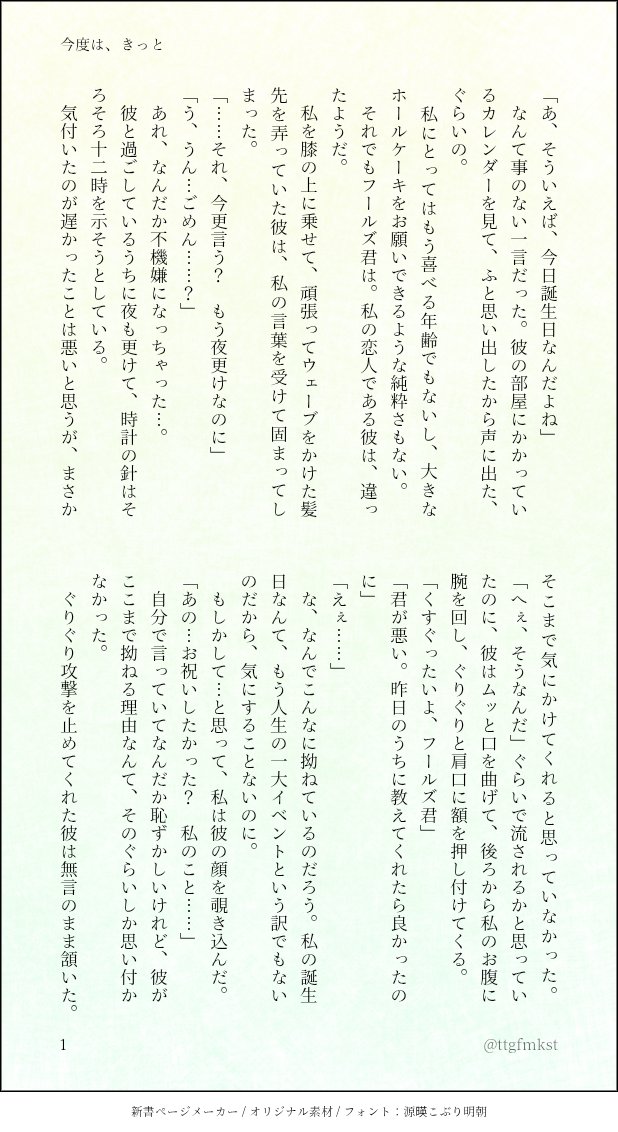 今度は、きっと
「あ、そういえば、今日誕生日なんだよね」
　なんて事のない一言だった。彼の部屋にかかってい
るカレンダーを見て、ふと思い出したから声に出た、
ぐらいの。
　私にとってはもう喜べる年齢でもないし、大きな
ホールケーキをお願いできるような純粋さもない。
　それでもフールズ君は。私の恋人である彼は、違っ
たようだ。
　私を膝の上に乗せて、頑張ってウェーブをかけた髪
先を弄っていた彼は、私の言葉を受けて固まってし
まった。
「……それ、今更言う？　もう夜更けなのに」
「う、うん…ごめん……？」
　あれ、なんだか不機嫌になっちゃった…。
　彼と過ごしているうちに夜も更けて、時計の針はそ
ろそろ十二時を示そうとしている。
　気付いたのが遅かったことは悪いと思うが、まさか
そこまで気にかけてくれると思っていなかった。
「へぇ、そうなんだ」ぐらいで流されるかと思ってい
たのに、彼はムッと口を曲げて、後ろから私のお腹に
腕を回し、ぐりぐりと肩口に額を押し付けてくる。
「くすぐったいよ、フールズ君」
「君が悪い。昨日のうちに教えてくれたら良かったの
に」
「えぇ……」
　な、なんでこんなに拗ねているのだろう。私の誕生
日なんて、もう人生の一大イベントという訳でもない
のだから、気にすることないのに。
　もしかして…と思って、私は彼の顔を覗き込んだ。
「あの…お祝いしたかった？　私のこと……」
　自分で言っていてなんだか恥ずかしいけれど、彼が
ここまで拗ねる理由なんて、そのぐらいしか思い付か
なかった。
　ぐりぐり攻撃を止めてくれた彼は無言のまま頷いた。
1
@ttgfmkst
新書ページメーカー / オリジナル素材 / フォント：源暎こぶり明朝